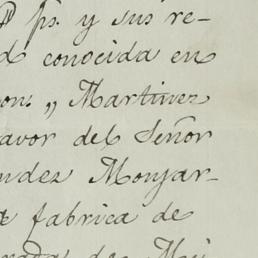 ps. y sus re-
conocida en
on: „ Martinez
avor del Señor
ndez Monjar-
fabrica de
de